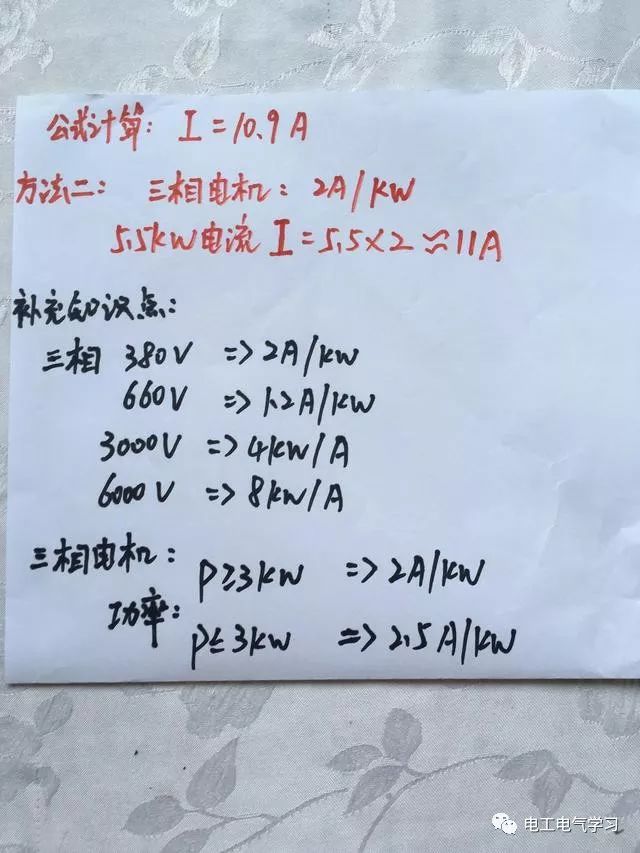 公式计算: I=10.9A
方法二: 三相电机: 2A/KW
5.5KW电流 I=5.5×2≈11A
补充知识点:
三相 380V => 2A/KW
660V => 1.2A/KW
3000V => 4KW/A
6000V => 8KW/A
三相电机: P≥3KW => 2A/KW
功率: P≤3KW => 2.5A/KW
电工电气学习